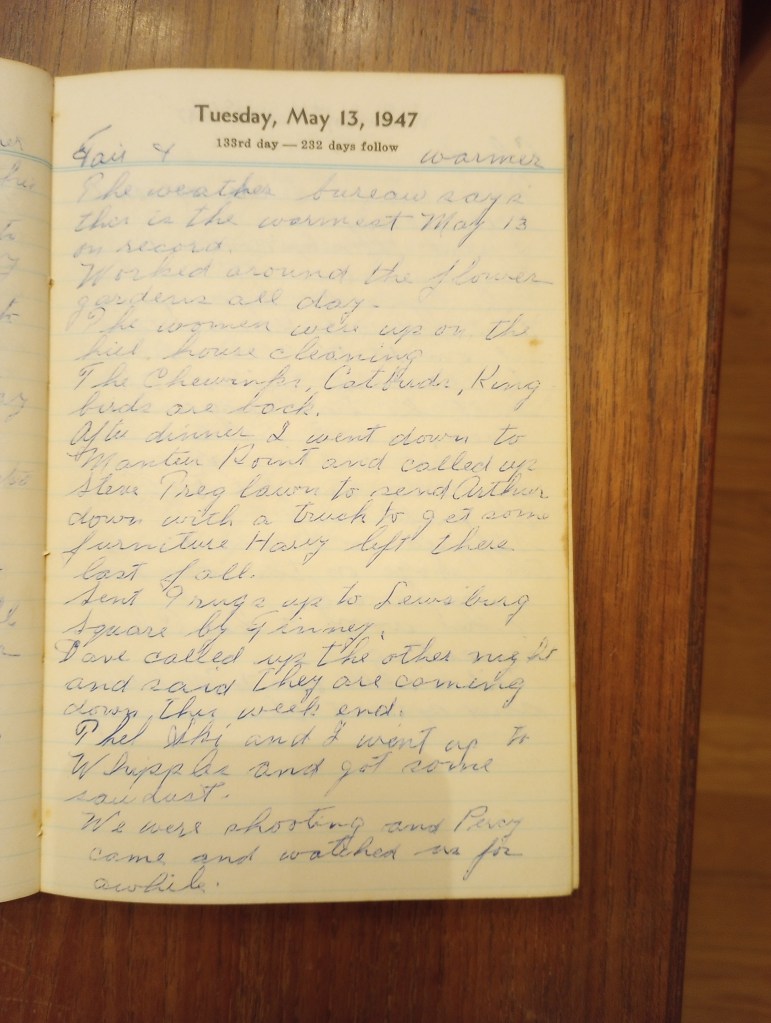 Tuesday, May 13, 1947
133rd day — 232 days follow
Fair & warmer
The weather bureau says
this is the warmest May 13
on record.
Worked around the flower
gardens all day.
The women were up on the
hill house cleaning
The Chewinks, Catbirds, King
birds are back.
After dinner I went down to
Point and called up
Steve Treg lawn to send Arthur
down with a truck to get some
furniture Harry left there
last fall.
Sent 9 rugs up to Lewisburg
Square by Finney.
Dave called up the other night
and said they are coming
down this week end.
Phel and I went up to
Whipples and got some
saw dust.
We were shooting and Percy
came and watched us for
awhile.